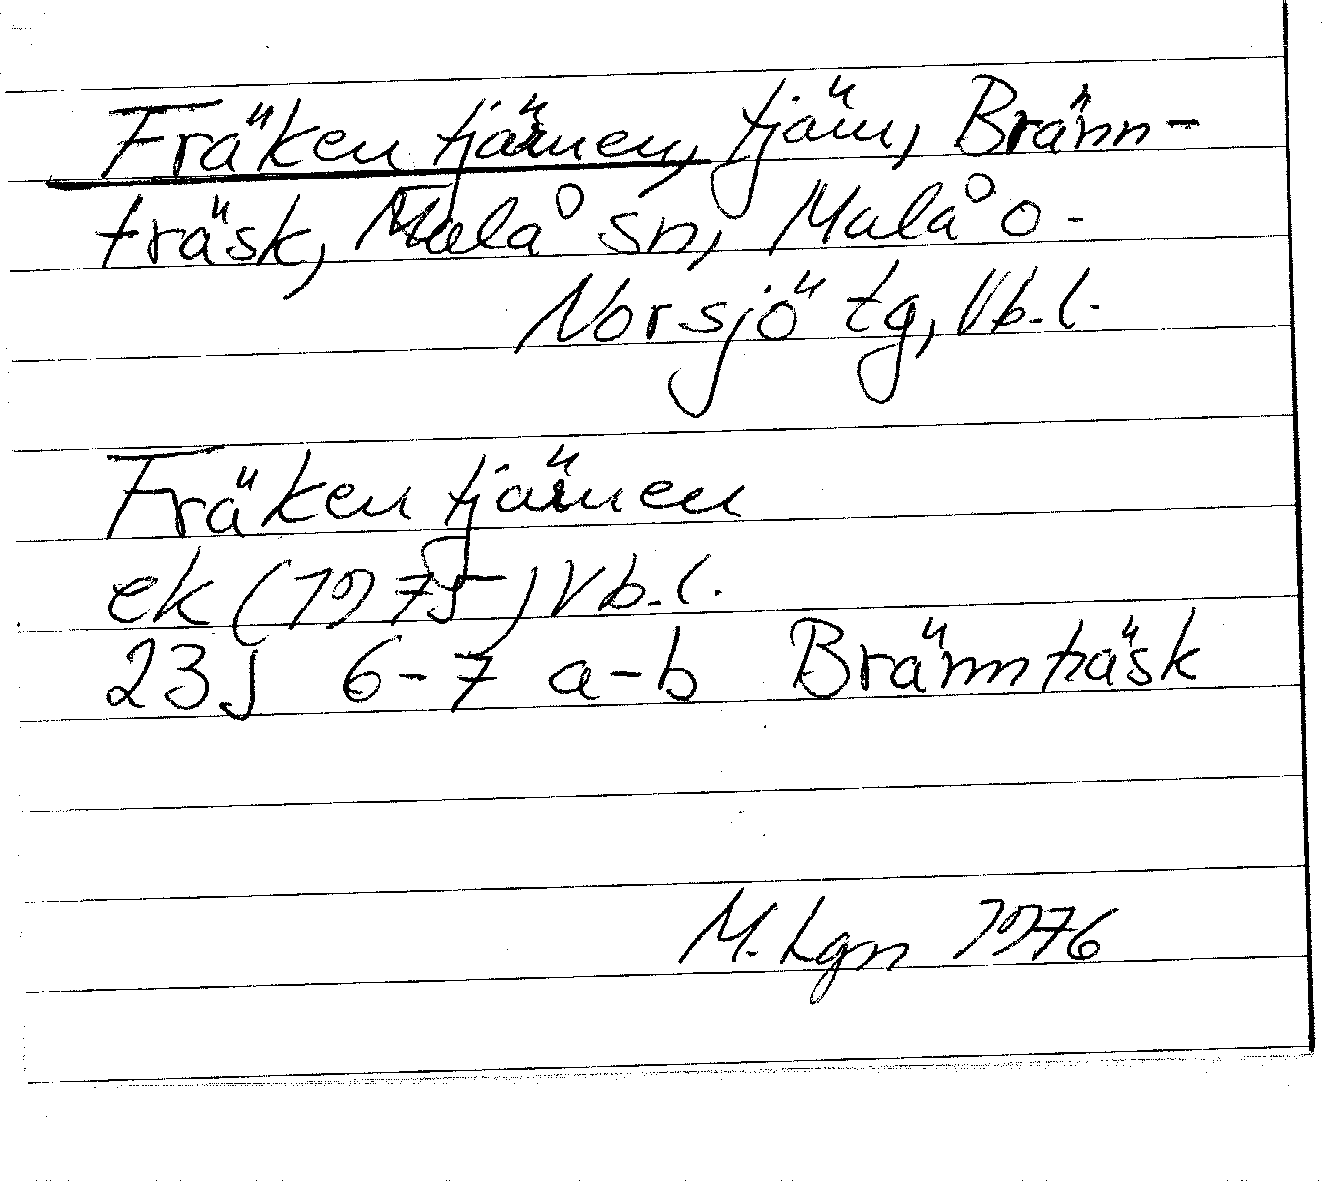 Fräkentjärnen, tjärn, Bränn-
träsk, Malå sn, Malå o-
Norsjö tg, Vb.l.
Fräkentjärnen
ek (1975) Vb.l.
23J 6-7 a-b Brännträsk
M. Lgn 1976